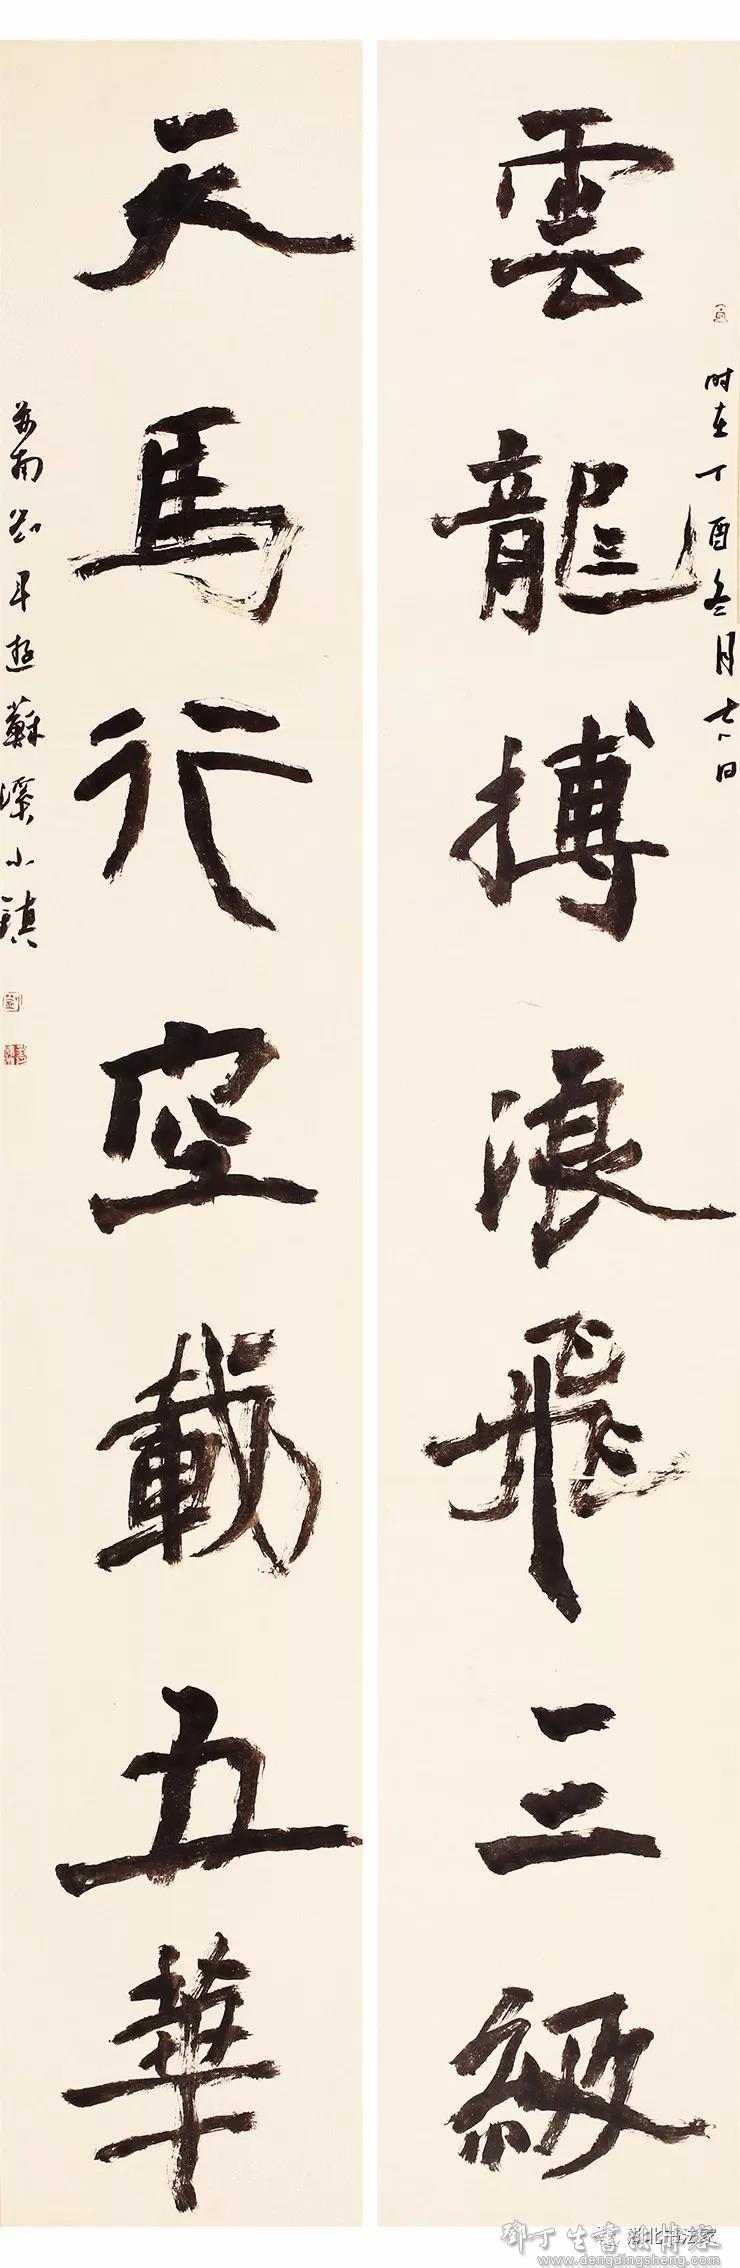 雲龍搏浪飛三級
时在丁酉冬月十八日
天馬行空載五華
蘇溪小鎮
湖北书法家
www.dengdingsheng.com